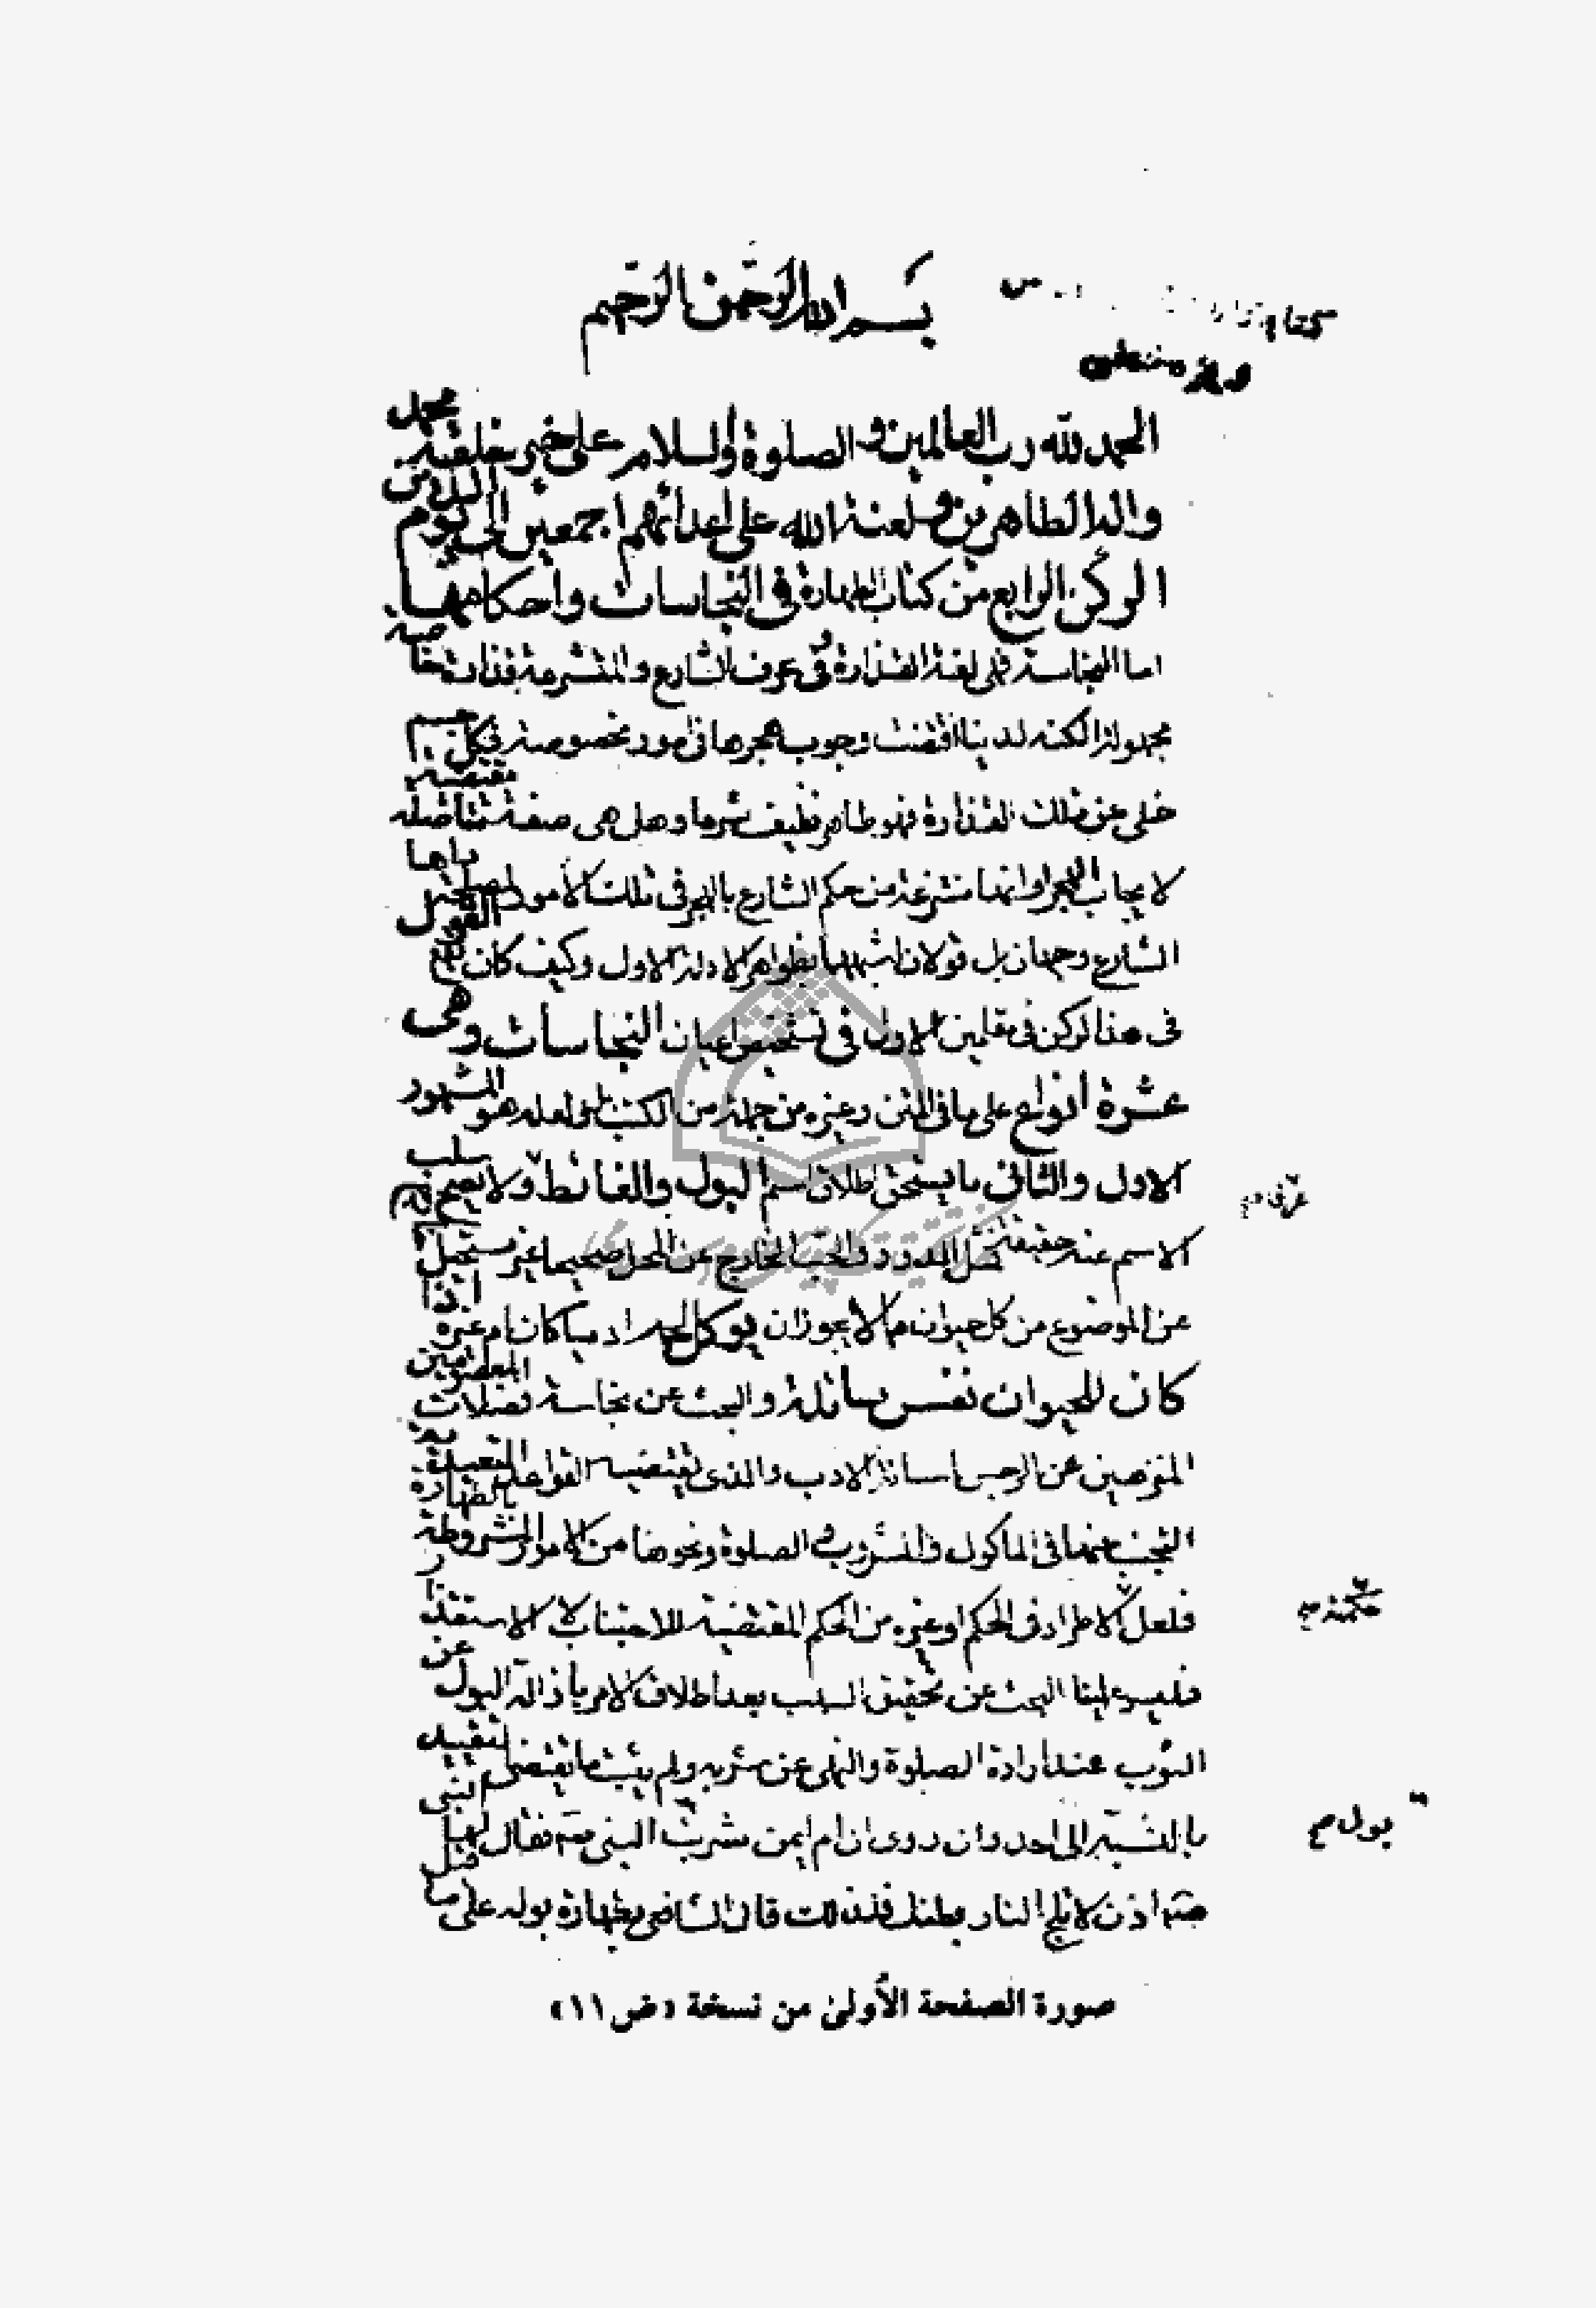 بسم الله الرحمن الرحيم
الحمد لله رب العالمين و الصلوة والسلام على خير خلقه محمد
واله الطاهرين ولعنة الله على اعدائهم اجمعين الى يوم الدين
الركن الرابع من كتاب الطهارة في النجاسات واحكامها
اما النجاسة فهي لغة القذارة وفي عرف الشارع والمتشرعة قذارة خاصة
مجهولة الكنه لدينا اقتضت وجوب هجرها في امور مخصوصة فكل جسم
خلى عن تلك القذارة فهو طاهر نظيف شرعا وهل هي صفة متأصلة مقتضية
لايجاب الهجر او انها منتزعة من حكم الشارع بالهجر في تلك الامور لمصلحة راها
الشارع وجهان بل قولان اشبههما بظواهر الادلة الاول وكيف كان فالقول
في هذا الركن في مقامين الاول في تشخيص اعيان النجاسات وهي
عشرة أنواع على ما في المتن وغيره من جملة من الكتب بل لعله هو المشهور
الاول والثاني ما يستحق اطلاق اسم البول والغائط ولا يصح سلب
الاسم عنه حقيقة كمثل الدود والحب الخارج عن المحل صحيحا غير مستحيل
عن الموضوع من كل حيوان مما لا يجوز ان يوكل لحمه ادميا كان ام غيره اذا
كان للحيوان نفس سائلة والبحث عن نجاسة فضلات المعصومين
المنزهين عن الرجس اسائة الادب والذي تقتضيه القواعد التعبدية
التجنب عنها في الماكول والمشروب في الصلوة ونحوها من الامور المشروطة بالطهارة
فلعل الاطراد في الحكم او غيره من الحكم المقتضية للاجتناب لا الاستقذار
فليس علينا البحث عن تحقيق السلب بعد اطلاق الامر بازالة البول عن
الثوب عند ارادة الصلوة والنهى عن شربه ولم يثبت ما يقتضى التقييد
بالنسبة الى احد وان روى ان ام ايمن شربت النبي صه فقال لها النبي
صه اذن لا تلج النار بطنك فلذلك قال الشافعي بطهارة بوله على ما قيل
بول صح
صورة الصفحة الأولىٰ من نسخة «ض ١١»